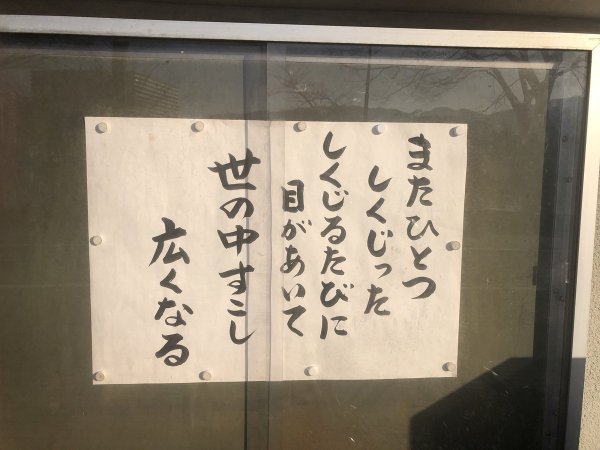 またひとつ
しくじった
しくじるたびに
目があいて
世の中すこし
広くなる